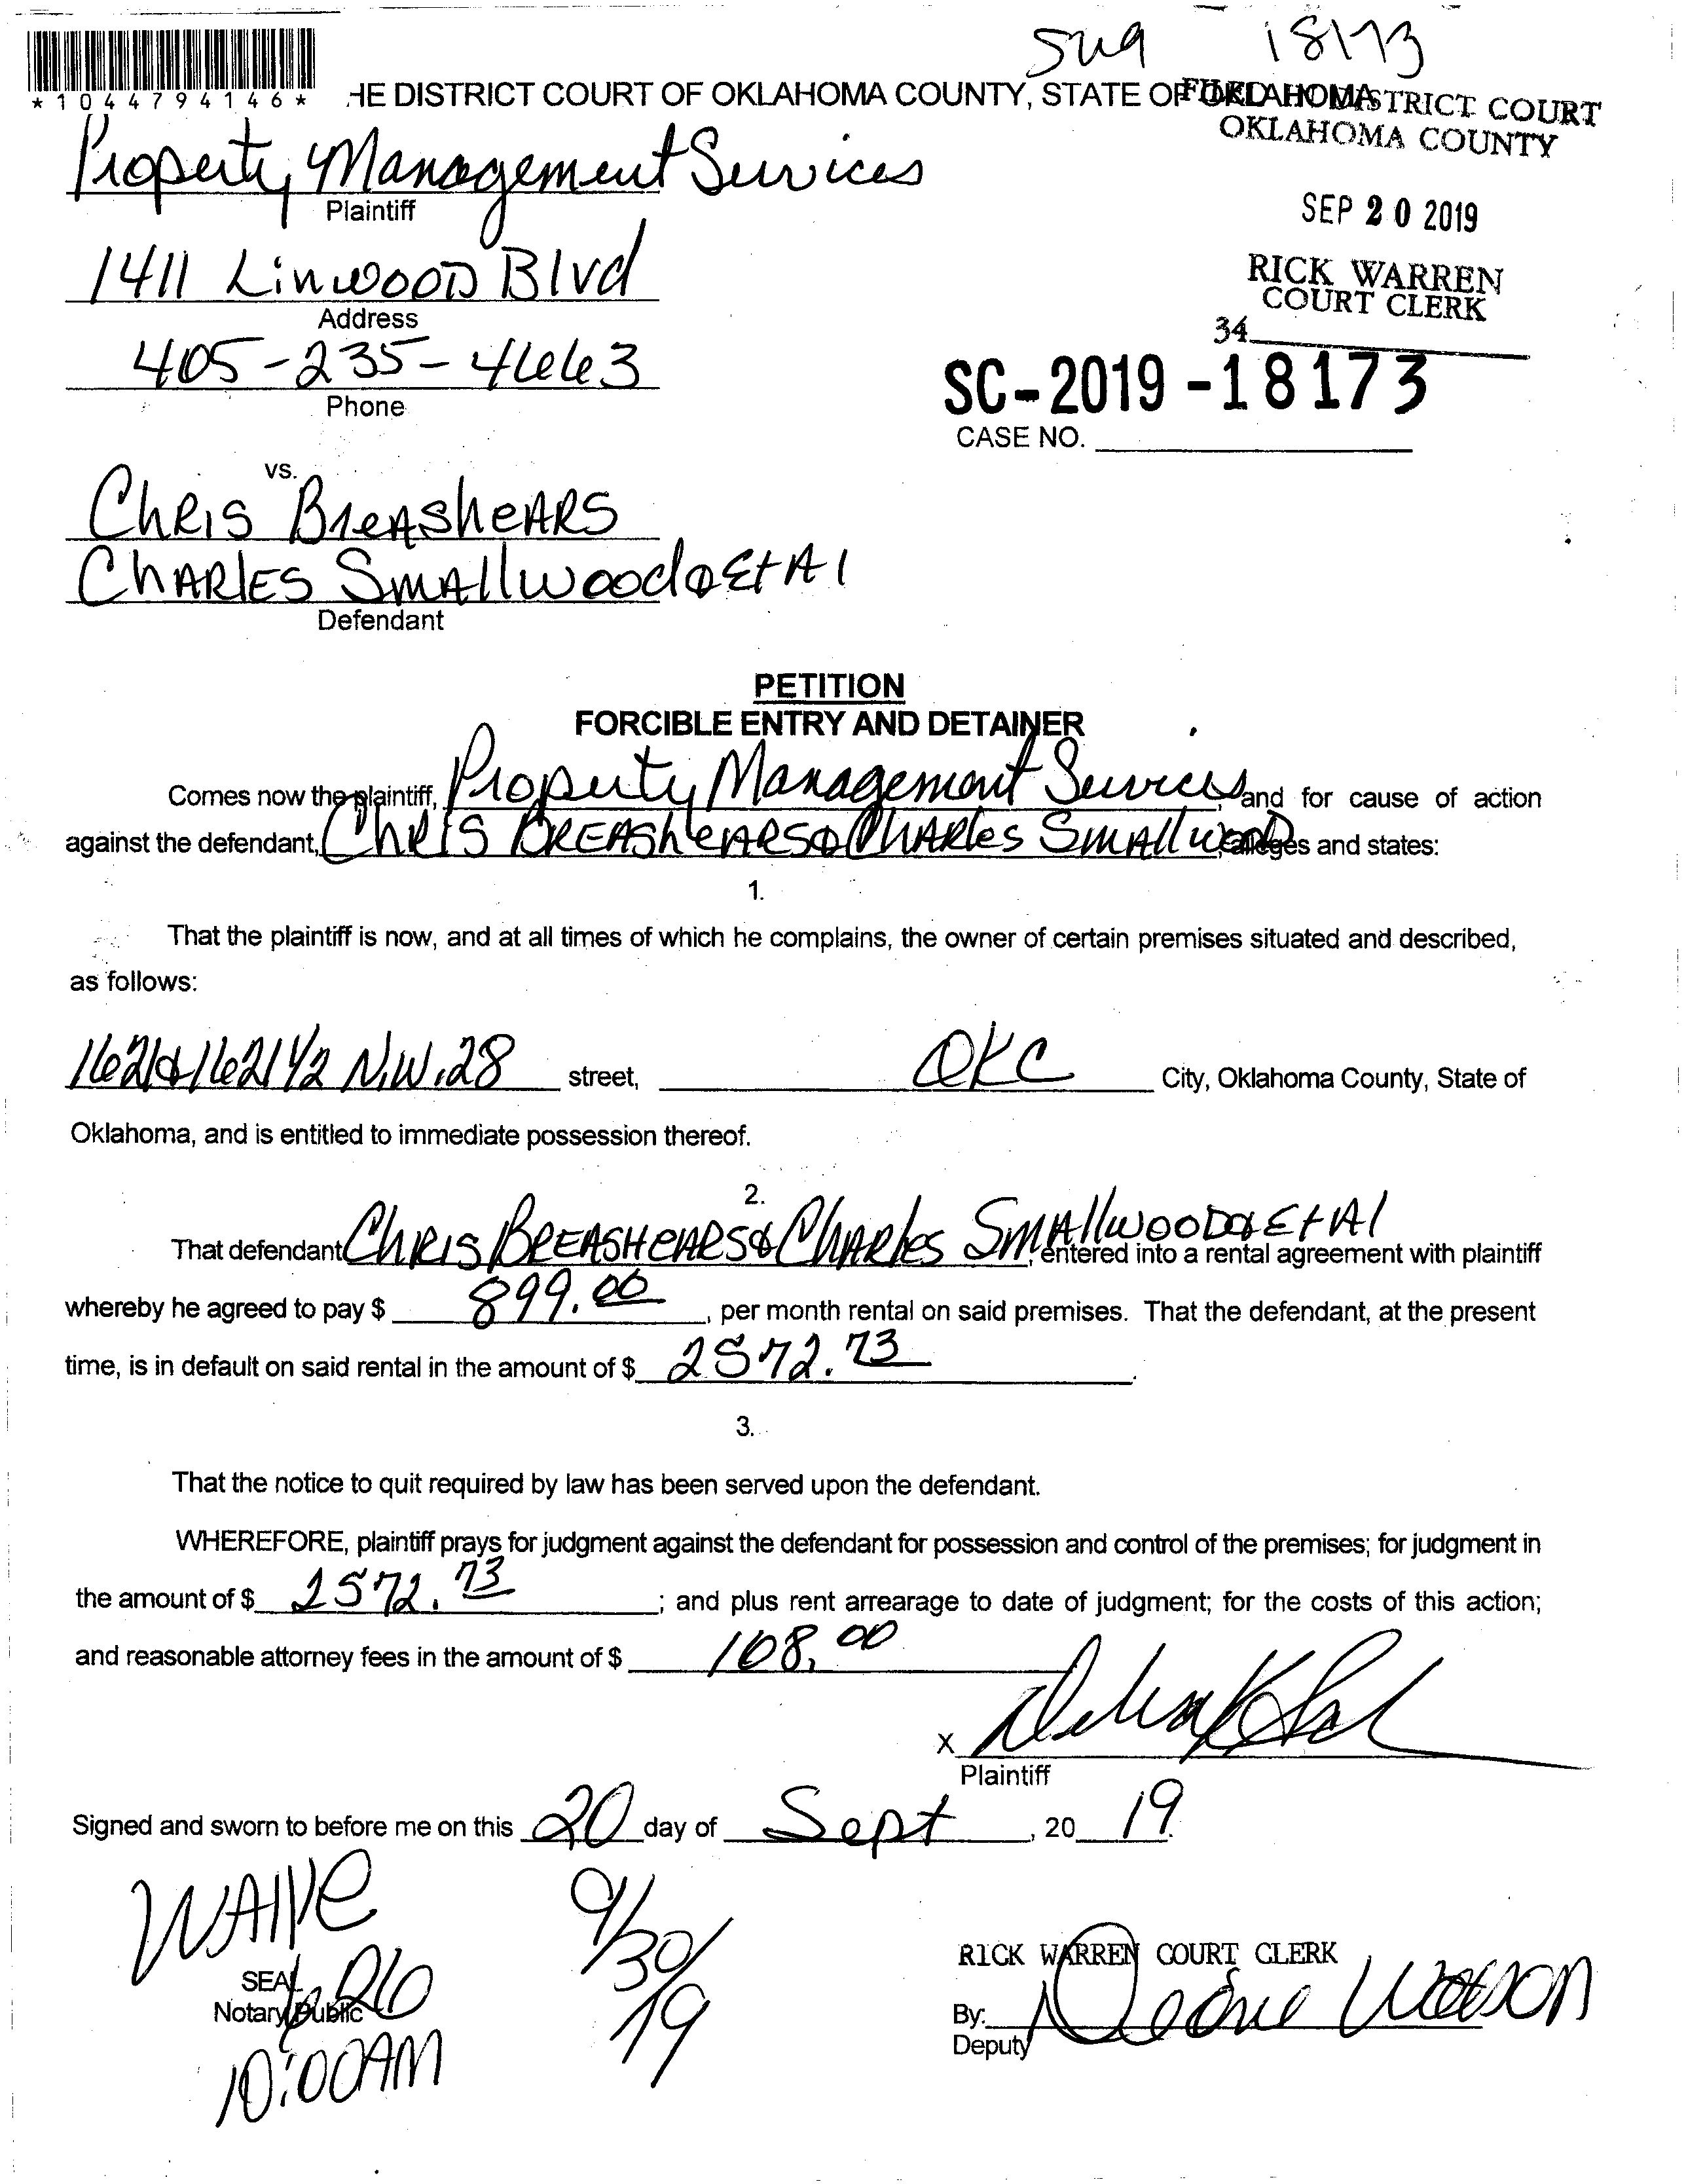 18173
*1044794146*
HE DISTRICT COURT OF OKLAHOMA COUNTY, STATE OF OKLAHOMA
FILED DISTRICT COURT
OKLAHOMA COUNTY
Property Management Services
Plaintiff
SEP 20 2019
1411 Linwood Blvd
Address
RICK WARREN
COURT CLERK
34
405-235-4663
Phone
SC-2019-18173
CASE NO.
vs.
Chris BreAsheARS
ChARlES SmAllwood & Et Al
Defendant
PETITION
FORCIBLE ENTRY AND DETAINER
Comes now the plaintiff, Property Management Services, and for cause of action
against the defendant, Chris BREAsheARS & ChARles SmAllwood, alleges and states:
1.
That the plaintiff is now, and at all times of which he complains, the owner of certain premises situated and described,
as follows:
1621 & 1621 1/2 N.W. 28 street, OKC City, Oklahoma County, State of
Oklahoma, and is entitled to immediate possession thereof.
2.
That defendant Chris BREASHeARS & ChARles SmAllwood & Et Al, entered into a rental agreement with plaintiff
whereby he agreed to pay $ 899.00, per month rental on said premises. That the defendant, at the present
time, is in default on said rental in the amount of $ 2572.73.
3.
That the notice to quit required by law has been served upon the defendant.
WHEREFORE, plaintiff prays for judgment against the defendant for possession and control of the premises; for judgment in
the amount of $ 2572.73; and plus rent arrearage to date of judgment; for the costs of this action;
and reasonable attorney fees in the amount of $ 108.00
X
Plaintiff
Signed and sworn to before me on this 20 day of Sept, 20 19.
WAIVE
9/30/19
SEAL
Notary Public
10:00AM
RICK WARREN COURT CLERK
By: Watson
Deputy